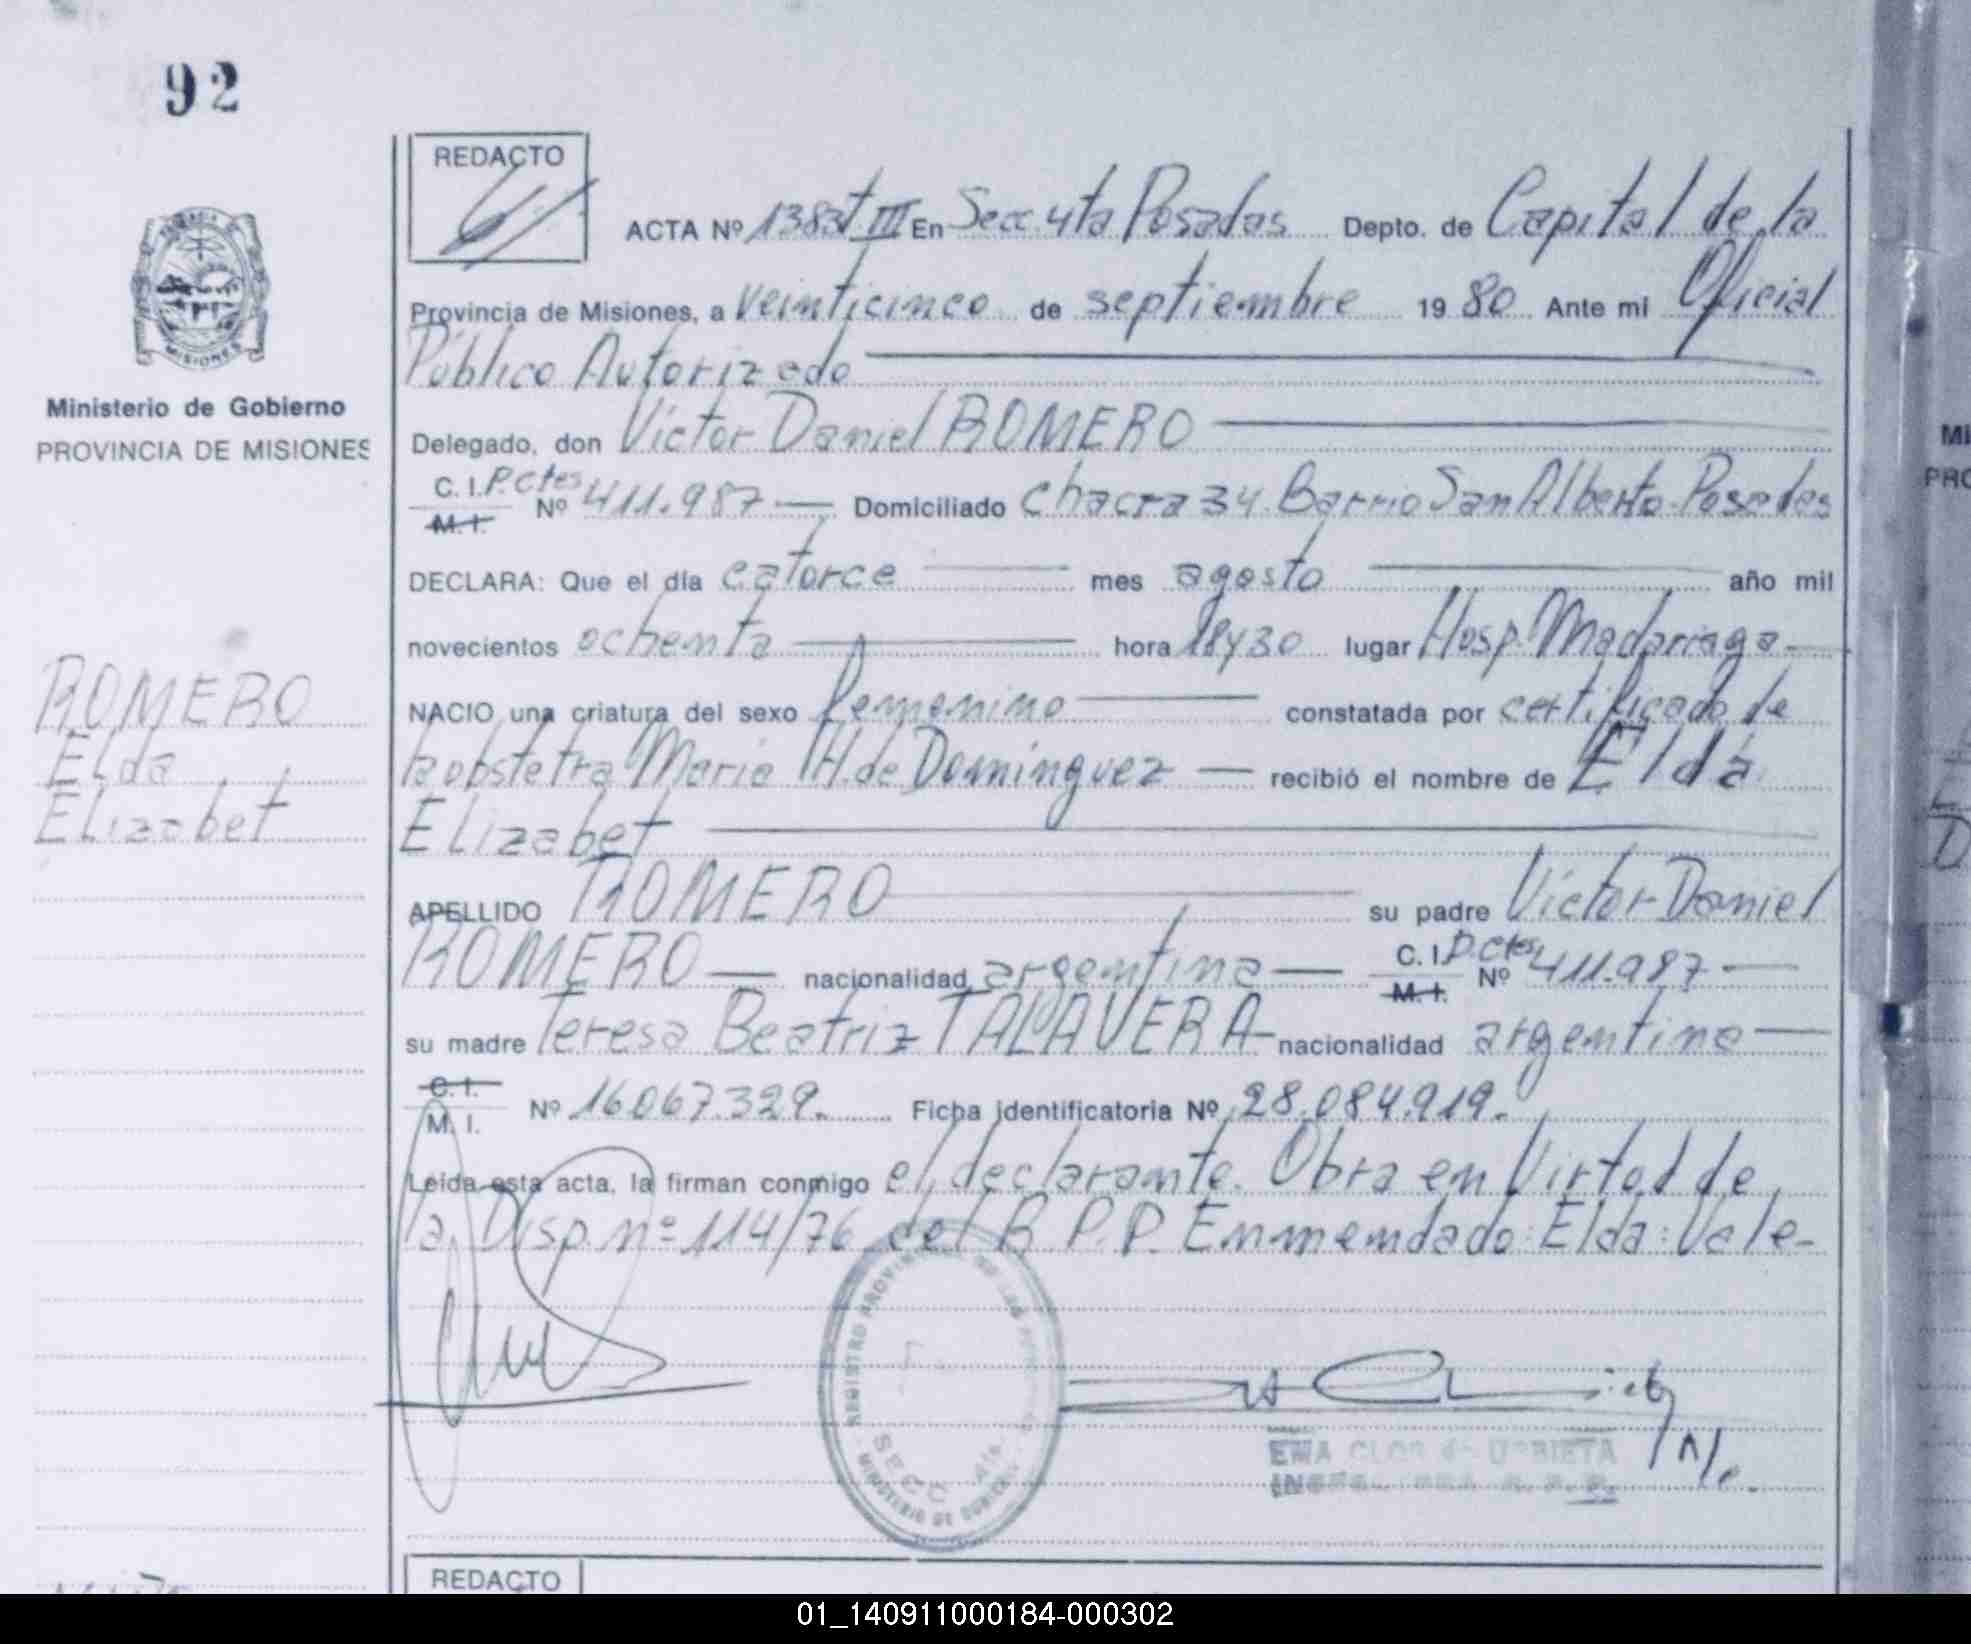 92
REDACTO
ACTA Nº 1383 T III En Secc. 4ta Posadas Depto. de Capital de la
Provincia de Misiones, a veinticinco de septiembre 19 80 Ante mi Oficial
Público Autorizado
Ministerio de Gobierno
PROVINCIA DE MISIONES
Delegado, don Victor Daniel ROMERO
C. I. P. Ctes
M. I. Nº 411.987 Domiciliado Chacra 34. Barrio San Alberto-Posadas
DECLARA: Que el día catorce mes agosto año mil
novecientos ochenta hora 18y30 lugar Hosp. Madariaga
ROMERO
Elda
Elizabet
NACIO una criatura del sexo femenino constatada por certificado de
la obstetra Maria H. de Dominguez recibió el nombre de Elda
Elizabet
APELLIDO ROMERO su padre Victor Daniel
ROMERO nacionalidad argentina C. I. P. Ctes M. I. Nº 411.987
su madre Teresa Beatriz TALAVERA nacionalidad argentina
C. I.
M. I. Nº 16.067.329. Ficha identificatoria Nº 28.084.919.
Leida esta acta, la firman conmigo el declarante. Obra en Virtud de
la Disp. nº 114/76 del R P.P. Enmendado: Elda: Vale-
REGISTRO
SECC
MINISTERIO DE
EMA CLOS de URBIETA
REDACTO
01_140911000184-000302